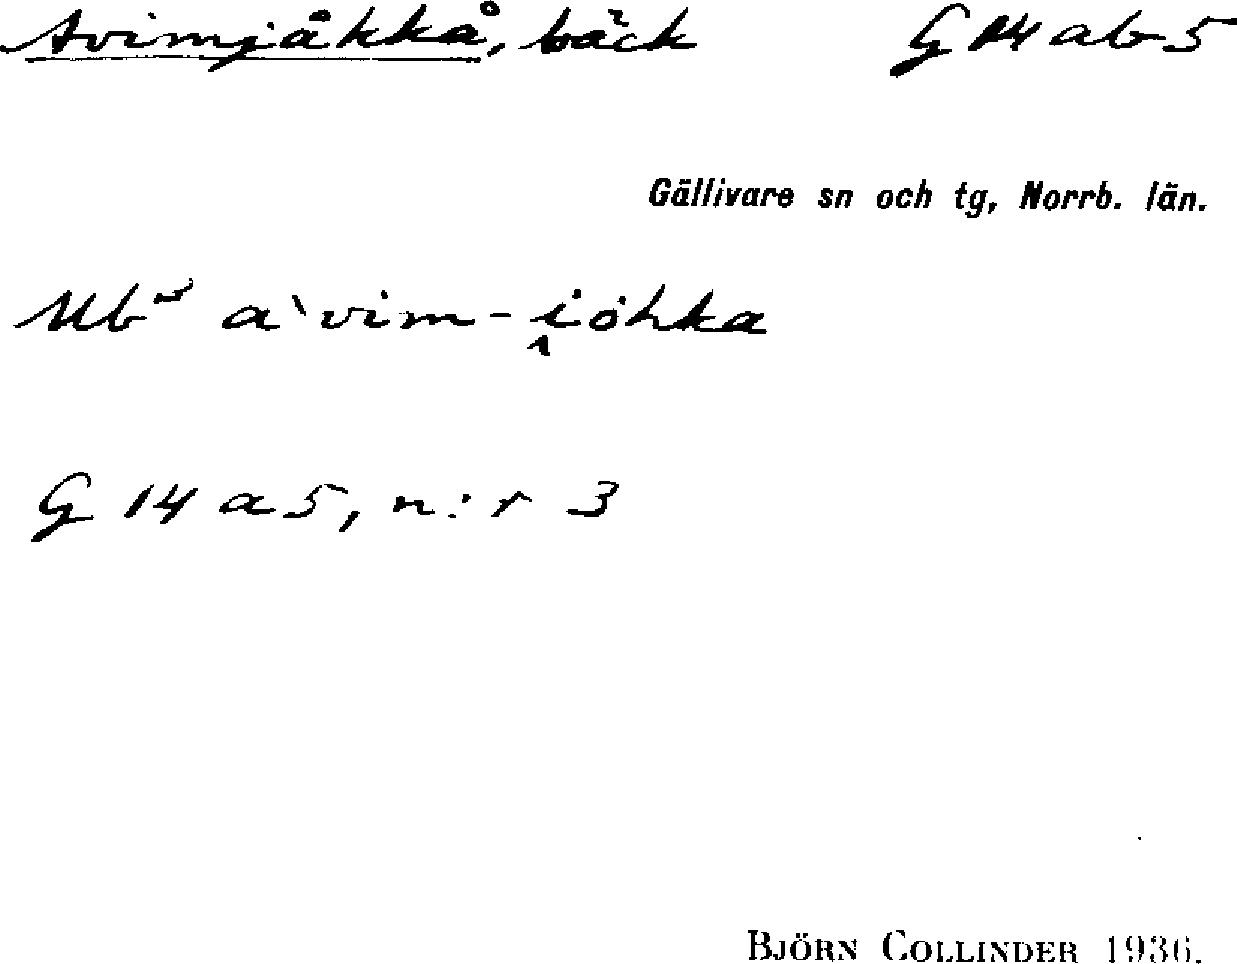 Avimjåkkå, bäck G 14 ab 5
Gällivare sn och tg, Norrb. län.
Ub a`vim-i̭öhka
G 14 a 5, n:r 3
BJÖRN COLLINDER 1936.